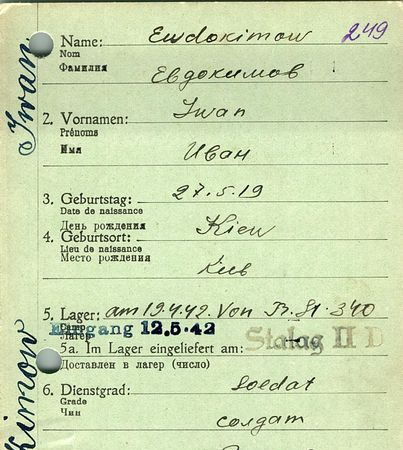 Name: Ewdokimow 249
Nom
Фамилия Евдокимов
2. Vornamen: Iwan
Prénoms
Имя Иван
3. Geburtstag: 27.5.19
Date de naissance
День рождения
4. Geburtsort: Kiew
Lieu de naissance
Место рождения Киев
5. Lager: am 19.4.42. Von B. St. 340
Camp
Лагерь
Eingang 12.5.42 Stalag II D
5a. Im Lager eingeliefert am:
Доставлен в лагерь (число)
6. Dienstgrad: Soldat
Grade
Чин солдат
Iwan
kimow